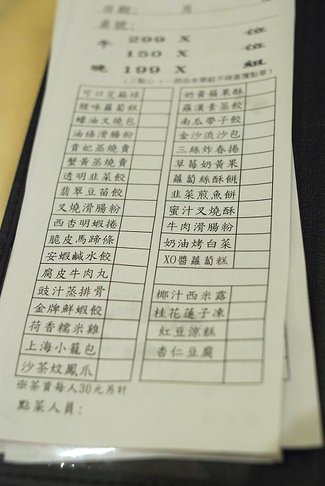 桌號：
午 299 X 位
150 X 位
晚 199 X 組
可口芝麻球
腊味蘿蔔糕
蠔油叉燒包
油條滑腸粉
貴妃蒸燒賣
蟹黃蒸燒賣
透明韭菜餃
翡翠豆苗餃
叉燒滑腸粉
西杏明蝦捲
脆皮馬蹄條
安蝦鹹水餃
腐皮牛肉丸
豉汁蒸排骨
金牌鮮蝦餃
荷香糯米雞
上海小籠包
沙茶炆鳳爪
奶黃蘋果酥
羅漢素蒸餃
南瓜帶子餃
金沙流沙包
三絲炸春捲
草莓奶黃果
蘿蔔絲酥餅
韭菜煎魚餅
蜜汁叉燒酥
牛肉滑腸粉
奶油烤白菜
XO醬蘿蔔糕
椰汁西米露
桂花蓮子凍
紅豆涼糕
杏仁豆腐
※茶資每人30元另計
點菜人員：